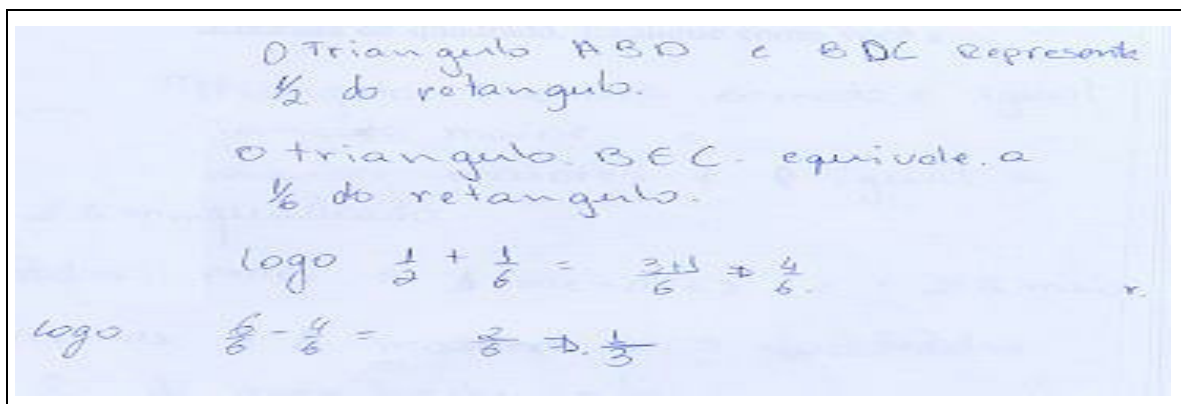 O Triangulo ABD e BDC Represente
1/2 do retangulo.
O triangulo. BEC. equivale. a
1/6 do retangulo.
logo 1/2 + 1/6 = 3+1/6 => 4/6.
logo 6/6 - 4/6 = 2/6 => 1/3